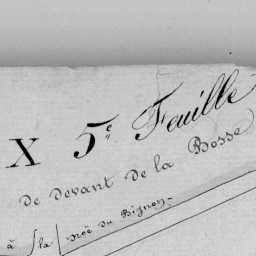 X 5e Feuille
De Devant De la Bosse
à la Noë du Bignon.